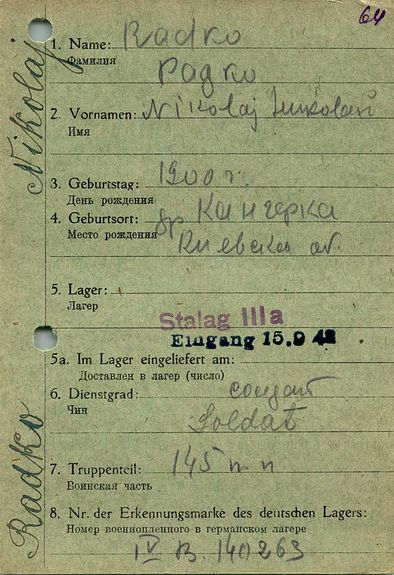 64
Nikolaj
Radko
1. Name: Radko
Фамилия
Радко
2. Vornamen: Nikolaj Николай
Имя
3. Geburtstag: 1900 г.
День рождения
4. Geburtsort: др Кангерка
Место рождения Киевская об.
5. Lager:
Лагер
Stalag IIIa
Eingang 15.9 42
5a. Im Lager eingeliefert am:
Доставлен в лагер (число)
6. Dienstgrad: солдат
Чин
Soldat
7. Truppenteil: 145
Воинская часть
8. Nr. der Erkennungsmarke des deutschen Lagers:
Номер военнопленного в германском лагере
IV B. 140263